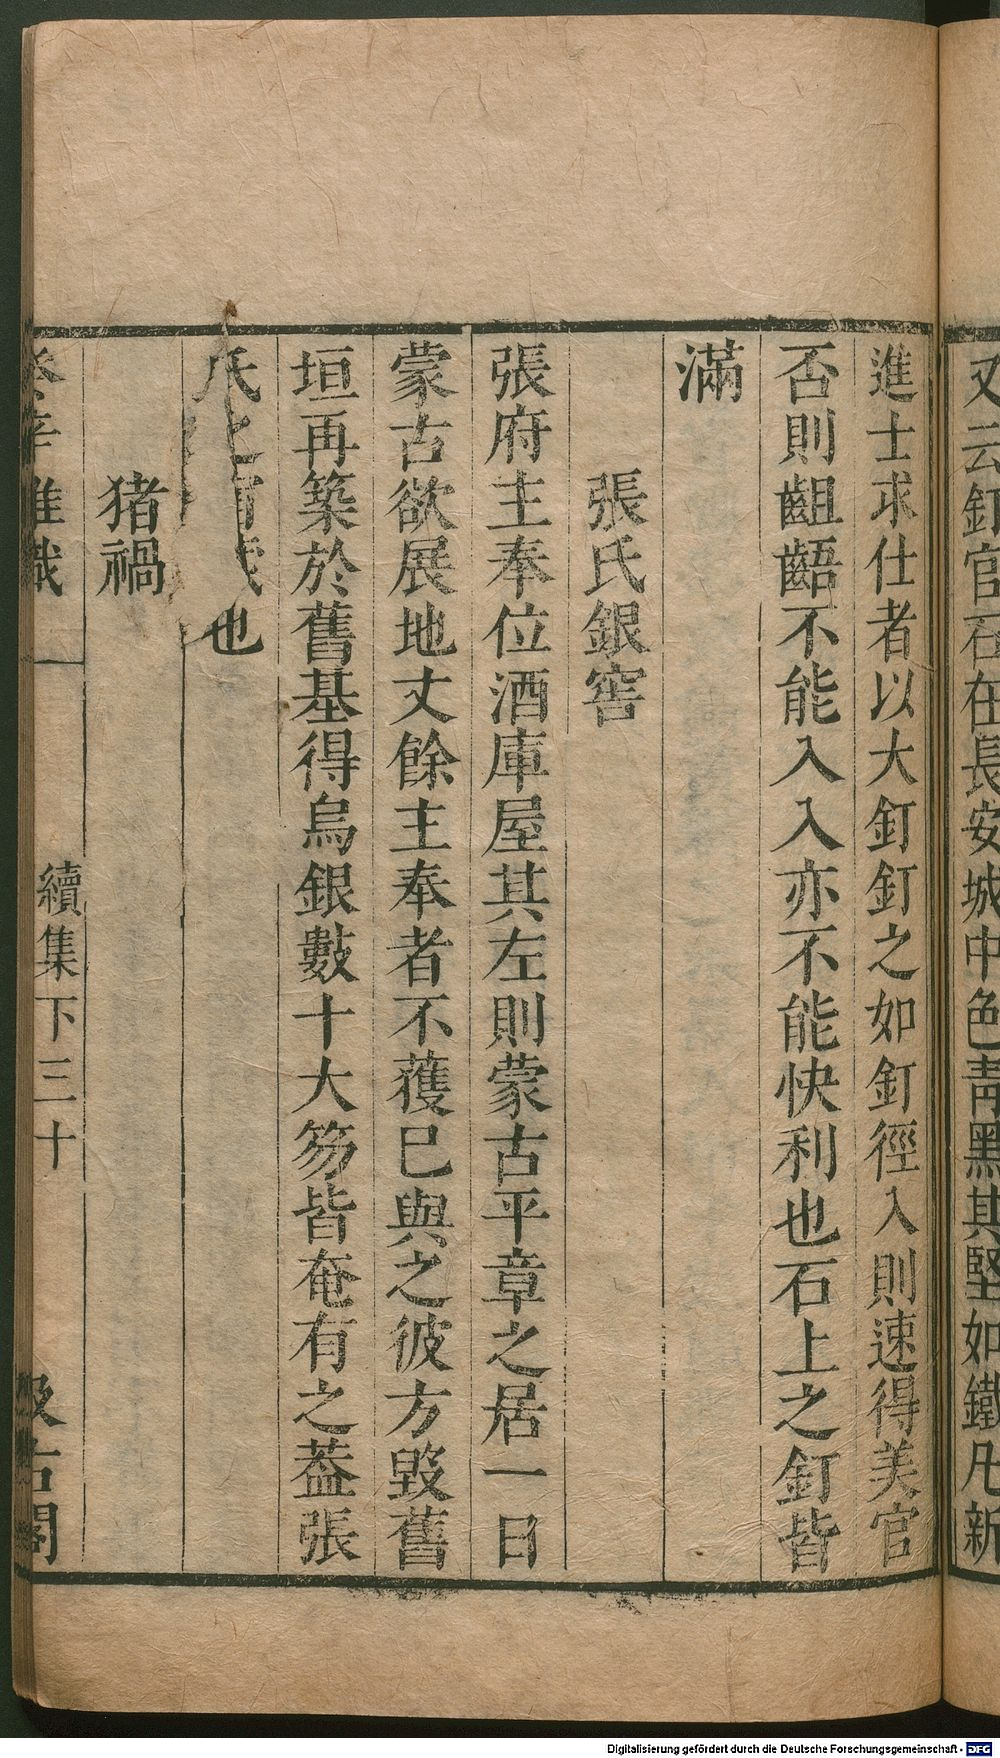 又云釘官石在長安城中色青黑其堅如鐵凡新
進士求仕者以大釘釘之如釘徑入則速得美官
否則齟齬不能入入亦不能快利也石上之釘皆
滿
張氏銀窖
張府主奉位酒庫屋其左則蒙古平章之居一日
蒙古欲展地丈餘主奉者不獲已與之彼方毀舊
垣再築於舊基得烏銀數十大笏皆奄有之葢張
氏之 也
猪禍
癸辛雜識
續集下三十
汲古閣
Digitalisierung gefördert durch die Deutsche Forschungsgemeinschaft - DFG